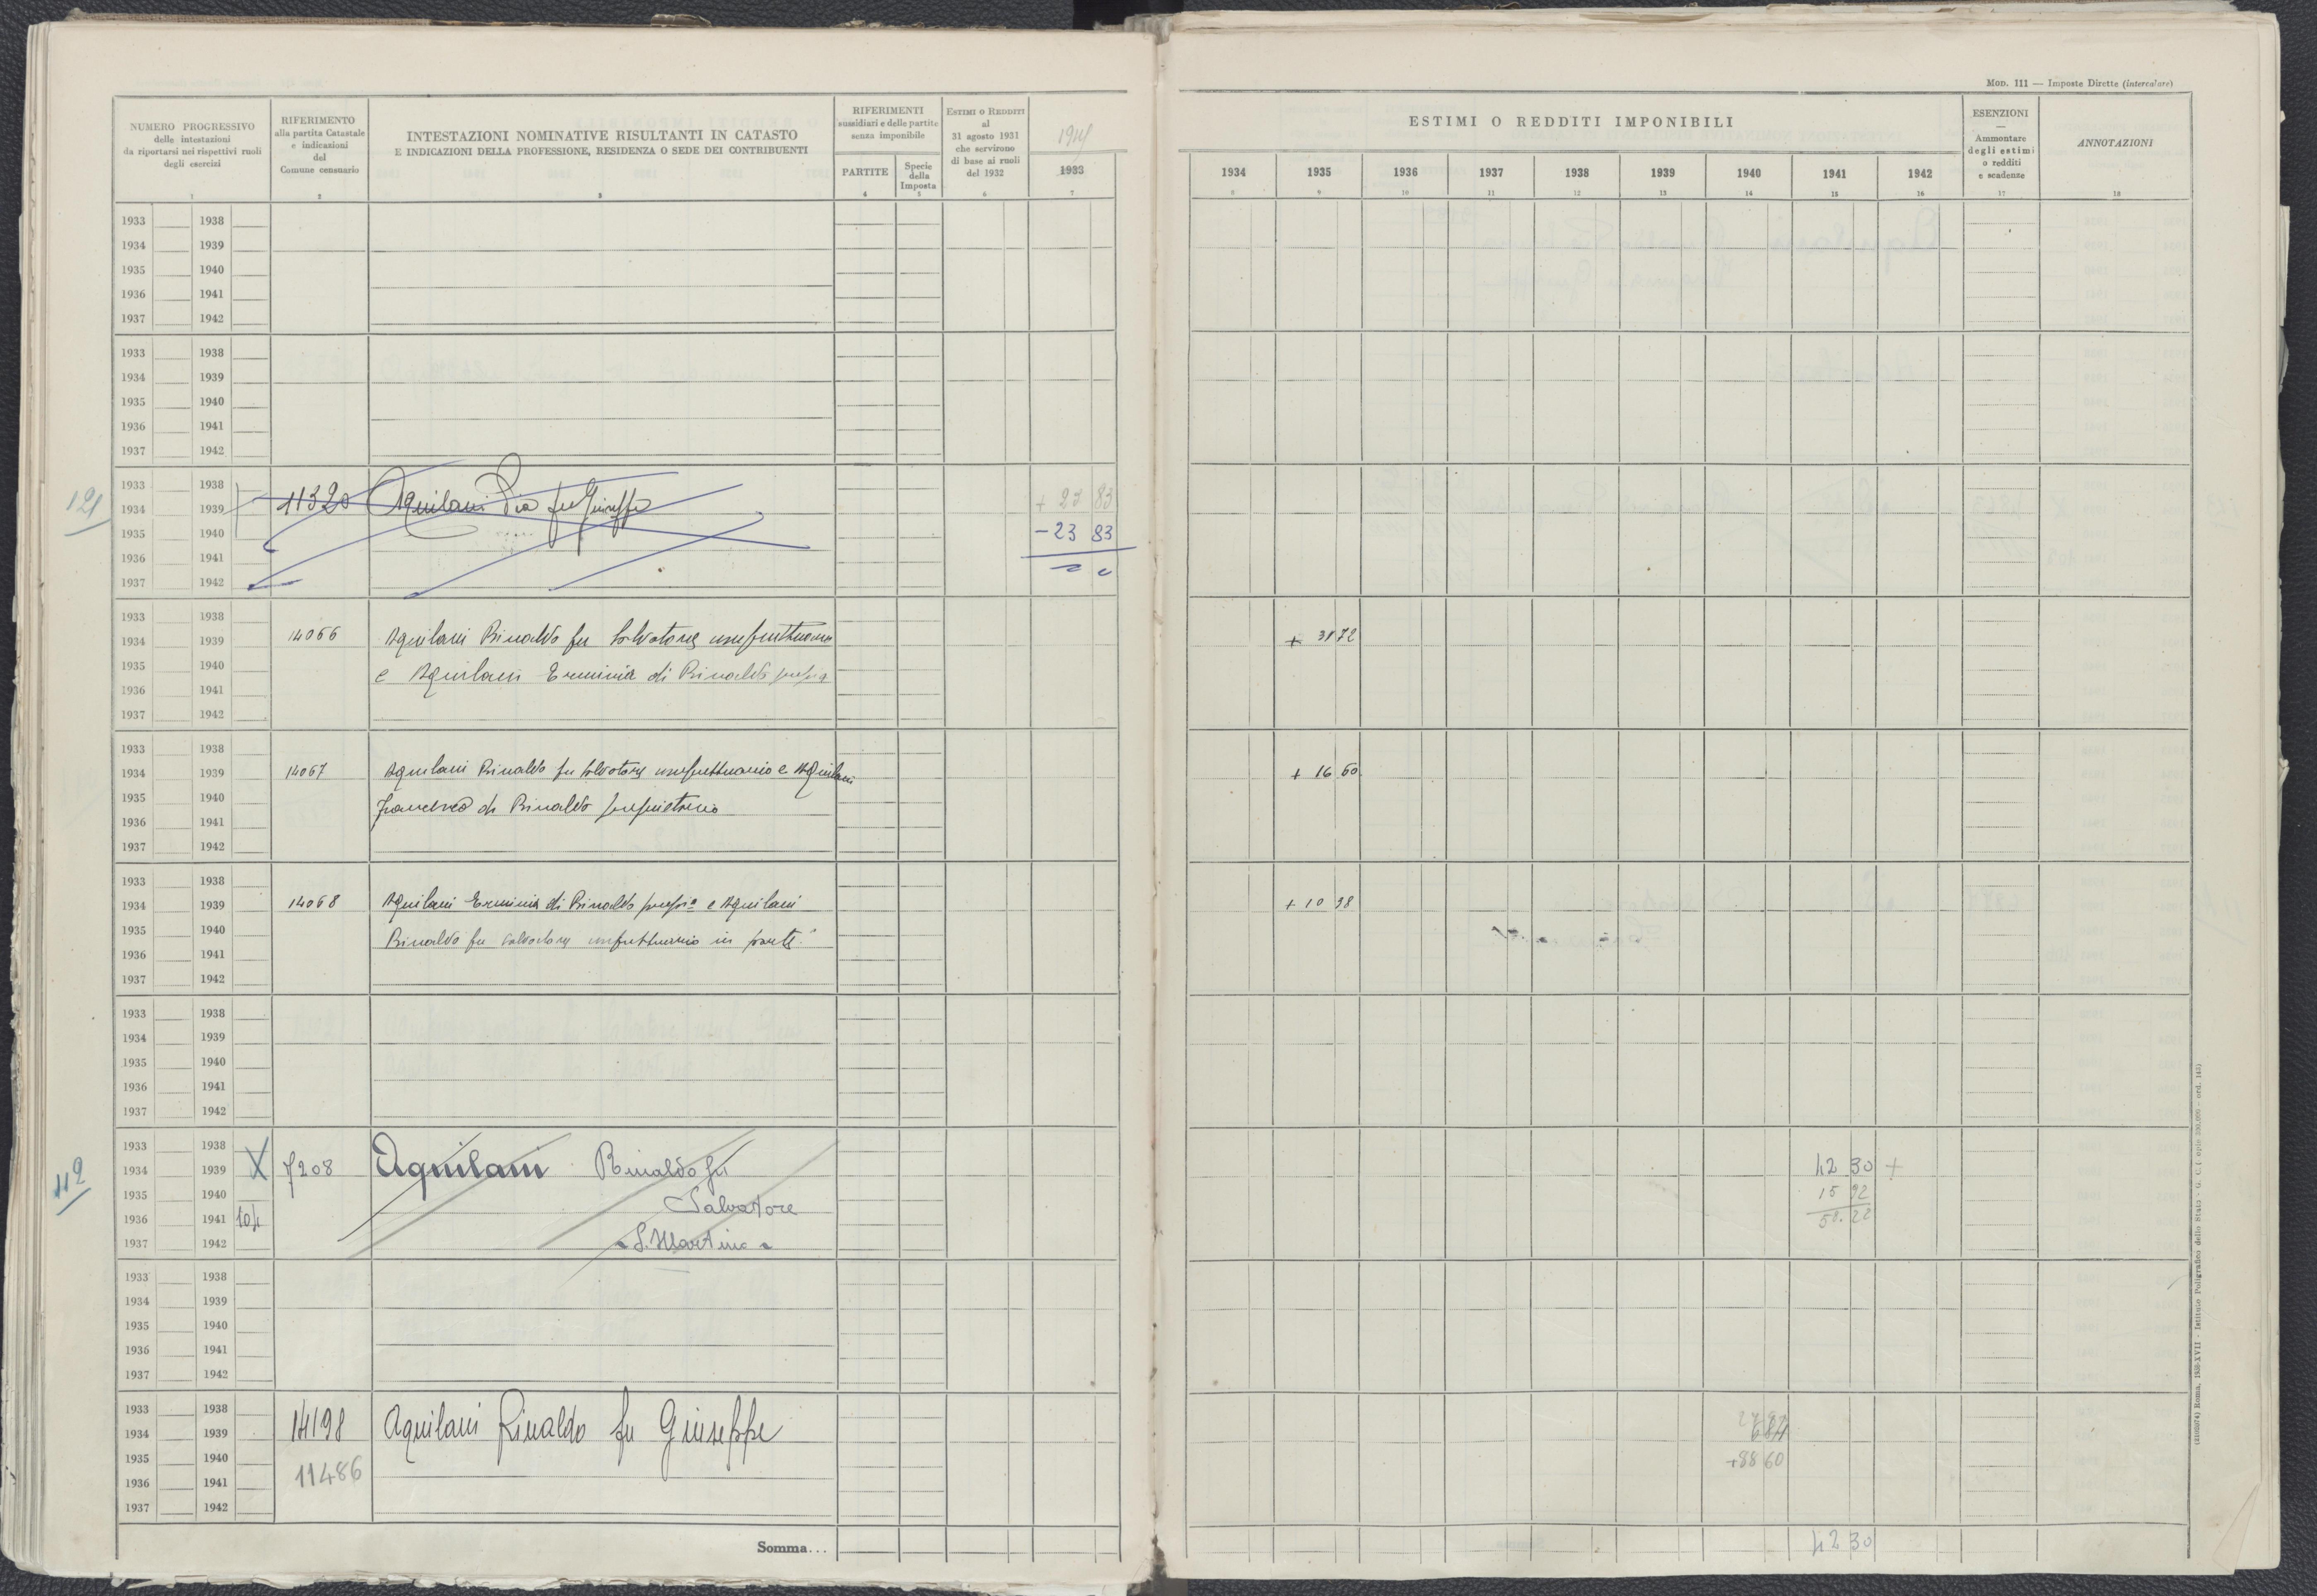 Mod. 111 — Imposte Dirette (intercalare)
NUMERO PROGRESSIVO
delle intestazioni
da riportarsi nei rispettivi ruoli
degli esercizi
1
RIFERIMENTO
alla partita Catastale
e indicazioni
del
Comune censuario
2
INTESTAZIONI NOMINATIVE RISULTANTI IN CATASTO
E INDICAZIONI DELLA PROFESSIONE, RESIDENZA O SEDE DEI CONTRIBUENTI
3
RIFERIMENTI
sussidiari e delle partite
senza imponibile
PARTITE
4
Specie
della
Imposta
5
ESTIMI O REDDITI
al
31 agosto 1931
che servirono
di base ai ruoli
del 1932
6
1933
7
ESTIMI O REDDITI IMPONIBILI
1934 1935 1936 1937 1938 1939 1940 1941 1942
8 9 10 11 12 13 14 15 16
ESENZIONI
—
Ammontare
degli estimi
o redditi
e scadenze
17
ANNOTAZIONI
18
1933 1938
1934 1939
1935 1940
1936 1941
1937 1942
1933 1938
1934 1939
1935 1940
1936 1941
1937 1942
121
1933 1938
1934 1939 11320 Aquilani Pia fu Giuseppe + 23 83
1935 1940 - 23 83
1936 1941
1937 1942
1933 1938
1934 1939 14066 Aquilani Rinaldo fu Salvatore usufruttuario + 31 72
1935 1940 e Aquilani Erminia di Rinaldo
1936 1941
1937 1942
1933 1938
1934 1939 14067 Aquilani Rinaldo fu Salvatore usufruttuario e Aquilani + 16 60
1935 1940 Francesco di Rinaldo proprietario
1936 1941
1937 1942
1933 1938
1934 1939 14068 Aquilani Erminia di Rinaldo e Aquilani + 10 98
1935 1940 Rinaldo fu Salvatore usufruttuario in parte
1936 1941
1937 1942
1933 1938
1934 1939
1935 1940
1936 1941
1937 1942
112
1933 1938
1934 1939 X 7208 Aquilani Rinaldo fu 42 30 +
1935 1940 Salvatore 15 92
1936 1941 58.22
1937 1942 S. Martino
1933 1938
1934 1939
1935 1940
1936 1941
1937 1942
1933 1938
1934 1939 14198 Aquilani Rinaldo fu Giuseppe
1935 1940 11486 +88 60
1936 1941
1937 1942
Somma... 42 30